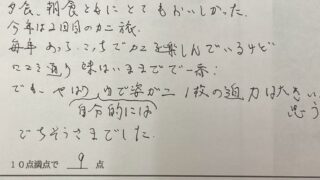 夕食、朝食ともにとてもおいしかった。
今年は2回目のカニ旅。
毎年あっちこっちでカニを楽しんでいるけど
口コミ通り味はいままでで一番!
でも やはり 姿ガニ1枚の迫力は大きい
自分的には 思う
ごちそうさまでした。
10点満点で 9 点